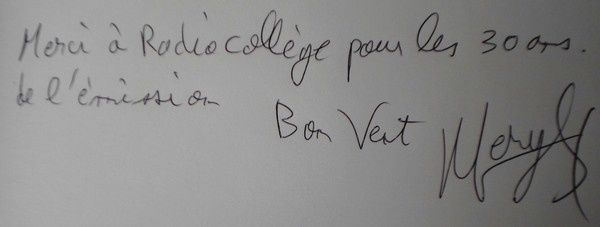 Merci à Radiocollège pour les 30 ans.
de l'émission
Bon Vent Meryl